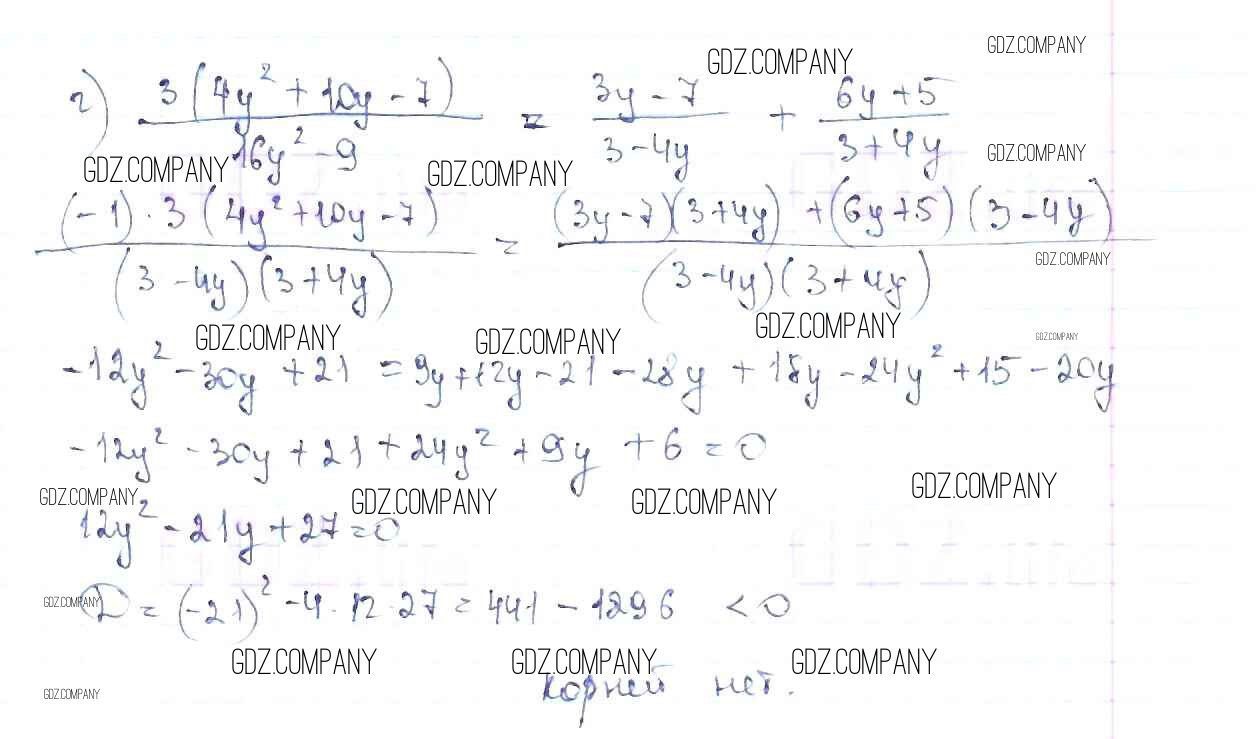 GDZ.COMPANY GDZ.COMPANY
г) 3(4y² + 10y - 7) / 16y² - 9 = 3y - 7 / 3 - 4y + 6y + 5 / 3 + 4y
GDZ.COMPANY GDZ.COMPANY GDZ.COMPANY
(-1) · 3 (4y² + 10y - 7) / (3 - 4y)(3 + 4y) = (3y - 7)(3 + 4y) + (6y + 5)(3 - 4y) / (3 - 4y)(3 + 4y)
GDZ.COMPANY
GDZ.COMPANY GDZ.COMPANY GDZ.COMPANY GDZ.COMPANY
-12y² - 30y + 21 = 9y + 12y - 21 - 28y + 18y - 24y² + 15 - 20y
-12y² - 30y + 21 + 24y² + 9y + 6 = 0
GDZ.COMPANY GDZ.COMPANY GDZ.COMPANY GDZ.COMPANY
12y² - 21y + 27 = 0
GDZ.COMPANY
D = (-21)² - 4 · 12 · 27 = 441 - 1296 < 0
GDZ.COMPANY GDZ.COMPANY GDZ.COMPANY
GDZ.COMPANY
корней нет.